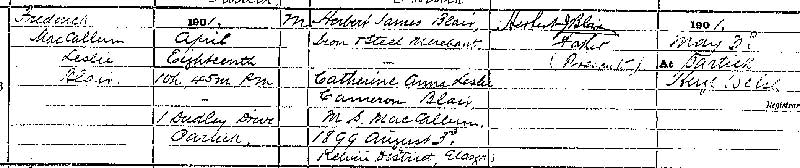 Frederick
MacCallum
Leslie
Blair.
1901.
April
Eighteenth
10h. 45m. P.M.
1 Dudley Drive
Partick.
M
Herbert James Blair,
Iron & Steel Merchant.
Catherine Anna Leslie
Cameron Blair
M.S. MacCallum.
1899 August 3d
Kelvin District, Glasgow.
Herbert J Blair
Father
(Present)
1901.
May 3d
At Partick
Registrar